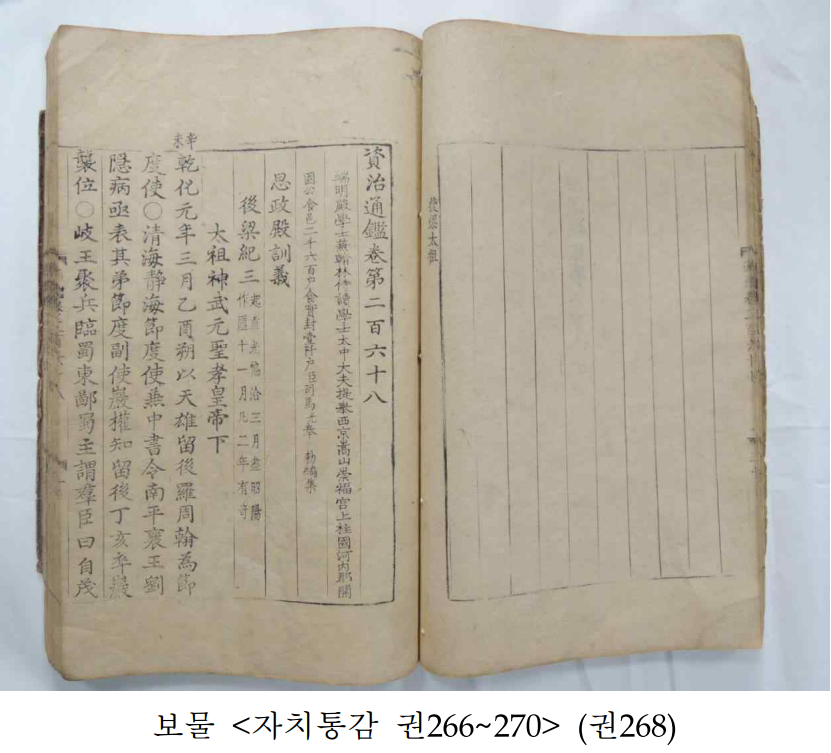 後梁太祖
資治通鑑卷第二百六十八
端明殿學士兼翰林侍讀學士太中大夫提擧西京嵩山崇福宮上柱國河內郡開
國公食邑二千六百戶食實封壹阡戶臣司馬光奉 勅編集
思政殿訓義
後梁紀三 起重光協洽三月盡昭陽
作噩十一月凡二年有奇
太祖神武元聖孝皇帝下
辛未
乾化元年三月乙酉朔以天雄留後羅周翰為節
度使○清海靜海節度使兼中書令南平襄王劉
隱病亟表其弟節度副使巖權知留後丁亥卒巖
襲位○岐王聚兵臨蜀東鄙蜀主謂羣臣曰自茂
보물 <자치통감 권266~270> (권268)